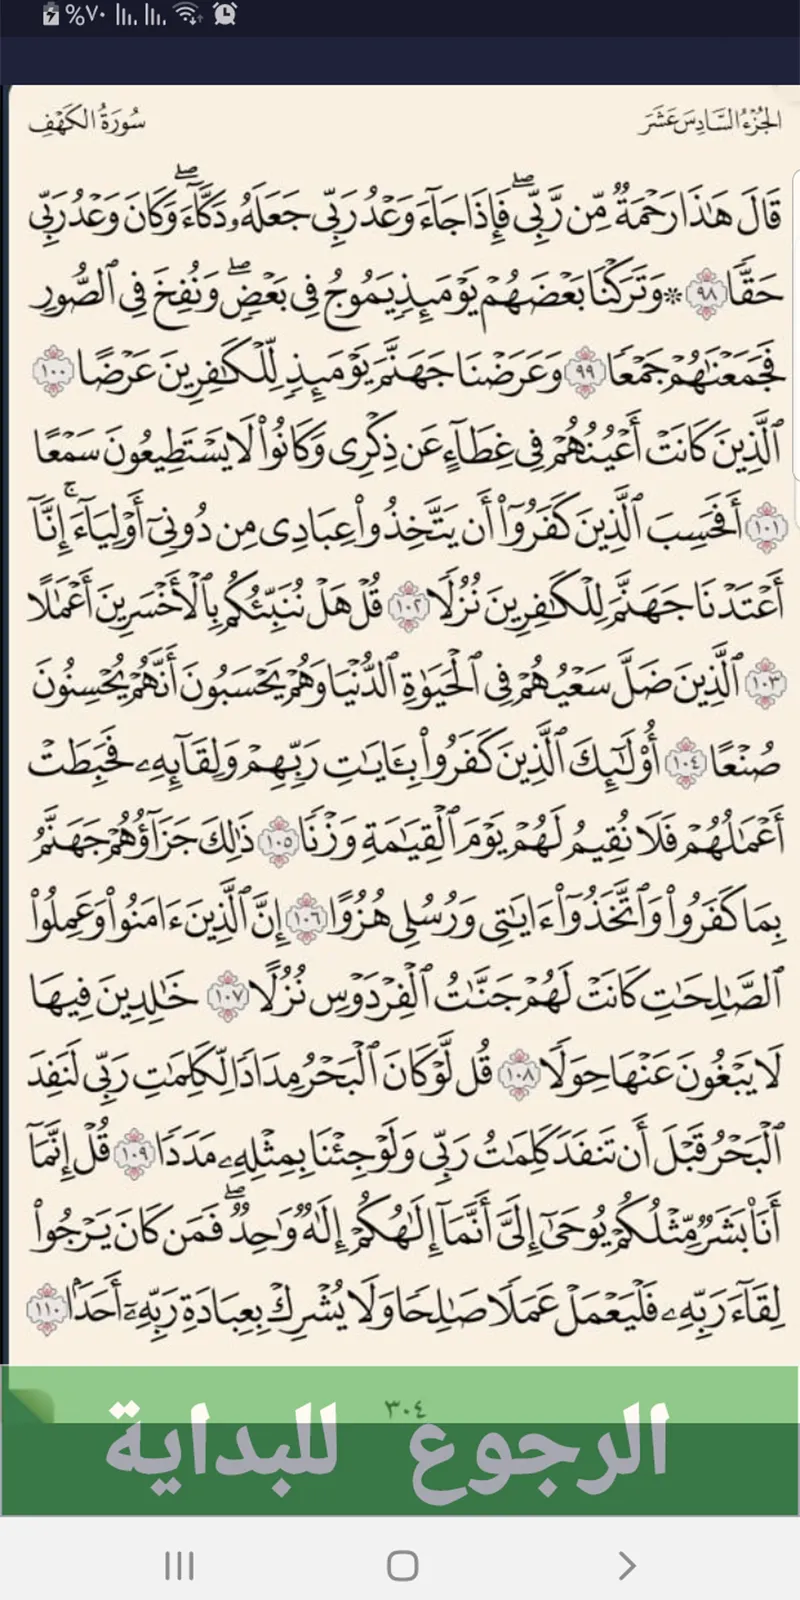 %٧٠
الجزء السادس عشر
سورة الكهف
قَالَ هَٰذَا رَحْمَةٌ مِّن رَّبِّىۖ فَإِذَا جَآءَ وَعْدُ رَبِّى جَعَلَهُۥ دَكَّآءَۖ وَكَانَ وَعْدُ رَبِّى
حَقًّا ٩٨ ۞ وَتَرَكْنَا بَعْضَهُمْ يَوْمَئِذٍ يَمُوجُ فِى بَعْضٍۖ وَنُفِخَ فِى ٱلصُّورِ
فَجَمَعْنَٰهُمْ جَمْعًا ٩٩ وَعَرَضْنَا جَهَنَّمَ يَوْمَئِذٍ لِّلْكَٰفِرِينَ عَرْضًا ١٠٠
ٱلَّذِينَ كَانَتْ أَعْيُنُهُمْ فِى غِطَآءٍ عَن ذِكْرِى وَكَانُوا۟ لَا يَسْتَطِيعُونَ سَمْعًا
١٠١ أَفَحَسِبَ ٱلَّذِينَ كَفَرُوٓا۟ أَن يَتَّخِذُوا۟ عِبَادِى مِن دُونِىٓ أَوْلِيَآءَۚ إِنَّآ
أَعْتَدْنَا جَهَنَّمَ لِلْكَٰفِرِينَ نُزُلًا ١٠٢ قُلْ هَلْ نُنَبِّئُكُم بِٱلْأَخْسَرِينَ أَعْمَٰلًا
١٠٣ ٱلَّذِينَ ضَلَّ سَعْيُهُمْ فِى ٱلْحَيَوٰةِ ٱلدُّنْيَا وَهُمْ يَحْسَبُونَ أَنَّهُمْ يُحْسِنُونَ
صُنْعًا ١٠٤ أُو۟لَٰٓئِكَ ٱلَّذِينَ كَفَرُوا۟ بِـَٔايَٰتِ رَبِّهِمْ وَلِقَآئِهِۦ فَحَبِطَتْ
أَعْمَٰلُهُمْ فَلَا نُقِيمُ لَهُمْ يَوْمَ ٱلْقِيَٰمَةِ وَزْنًا ١٠٥ ذَٰلِكَ جَزَآؤُهُمْ جَهَنَّمُ
بِمَا كَفَرُوا۟ وَٱتَّخَذُوٓا۟ ءَايَٰتِى وَرُسُلِى هُزُوًا ١٠٦ إِنَّ ٱلَّذِينَ ءَامَنُوا۟ وَعَمِلُوا۟
ٱلصَّٰلِحَٰتِ كَانَتْ لَهُمْ جَنَّٰتُ ٱلْفِرْدَوْسِ نُزُلًا ١٠٧ خَٰلِدِينَ فِيهَا
لَا يَبْغُونَ عَنْهَا حِوَلًا ١٠٨ قُل لَّوْ كَانَ ٱلْبَحْرُ مِدَادًا لِّكَلِمَٰتِ رَبِّى لَنَفِدَ
ٱلْبَحْرُ قَبْلَ أَن تَنفَدَ كَلِمَٰتُ رَبِّى وَلَوْ جِئْنَا بِمِثْلِهِۦ مَدَدًا ١٠٩ قُلْ إِنَّمَآ
أَنَا۠ بَشَرٌ مِّثْلُكُمْ يُوحَىٰٓ إِلَىَّ أَنَّمَآ إِلَٰهُكُمْ إِلَٰهٌ وَٰحِدٌۖ فَمَن كَانَ يَرْجُوا۟
لِقَآءَ رَبِّهِۦ فَلْيَعْمَلْ عَمَلًا صَٰلِحًا وَلَا يُشْرِكْ بِعِبَادَةِ رَبِّهِۦٓ أَحَدًۢا ١١٠
٣٠٤
الرجوع للبداية